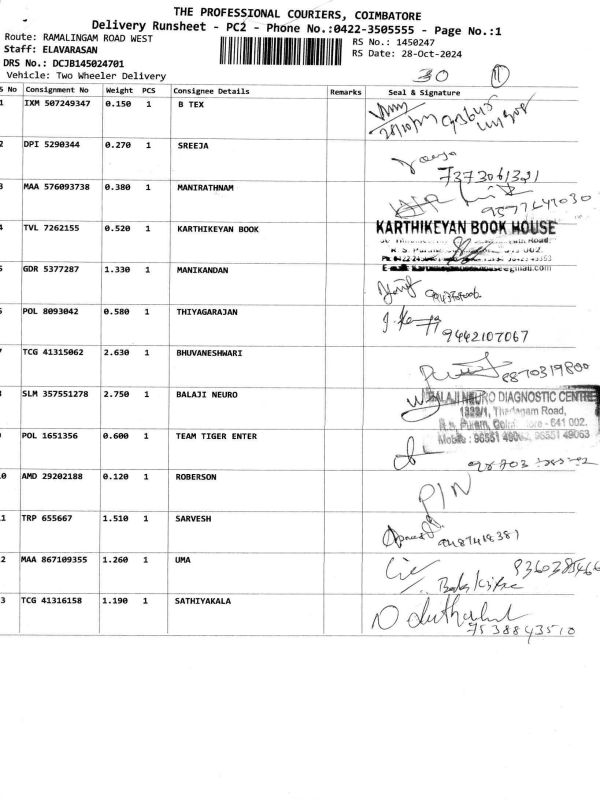 THE PROFESSIONAL COURIERS, COIMBATORE
Delivery Runsheet - PC2 - Phone No.:0422-3505555 - Page No.:1
Route: RAMALINGAM ROAD WEST RS No.: 1450247
Staff: ELAVARASAN RS Date: 28-Oct-2024
DRS No.: DCJB145024701
Vehicle: Two Wheeler Delivery 30 11
S No Consignment No Weight PCS Consignee Details Remarks Seal & Signature
1 IXM 507249347 0.150 1 B TEX
2 DPI 5290344 0.270 1 SREEJA
7373061331
3 MAA 576093738 0.380 1 MANIRATHNAM
4 TVL 7262155 0.520 1 KARTHIKEYAN BOOK KARTHIKEYAN BOOK HOUSE
5 GDR 5377287 1.330 1 MANIKANDAN
6 POL 8093042 0.580 1 THIYAGARAJAN
9442107067
7 TCG 41315062 2.630 1 BHUVANESHWARI
8870319800
8 SLM 357551278 2.750 1 BALAJI NEURO BALAJI NEURO DIAGNOSTIC CENTRE
Thadagam Road,
R.S. Puram, - 641 002.
Mobile : 96551 49063
9 POL 1651356 0.600 1 TEAM TIGER ENTER
10 AMD 29202188 0.120 1 ROBERSON PIN
11 TRP 655667 1.510 1 SARVESH
12 MAA 867109355 1.260 1 UMA
13 TCG 41316158 1.190 1 SATHIYAKALA
7538843510